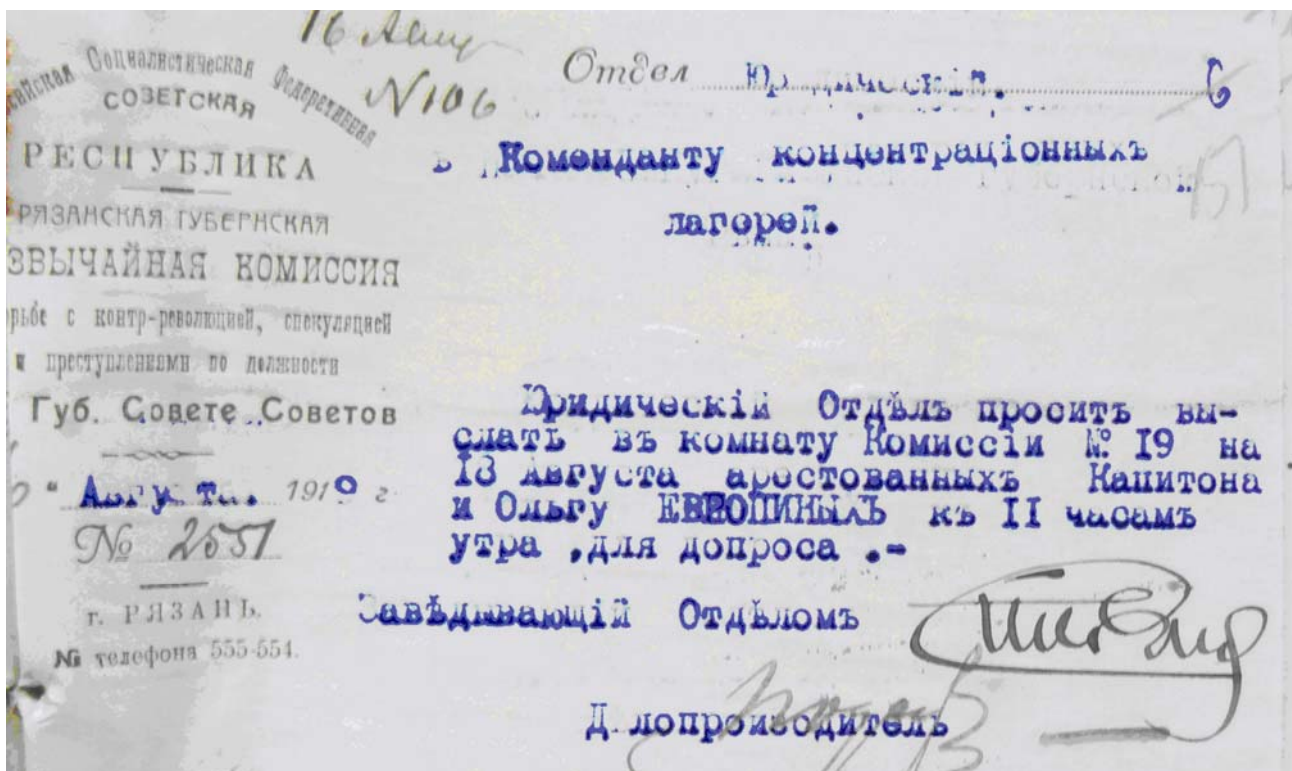 16 Авг
№106
Социалистическая Федеративная
СОВЕТСКАЯ
РЕСПУБЛИКА
РЯЗАНСКАЯ ГУБЕРНСКАЯ
ЗВЫЧАЙНАЯ КОМИССИЯ
рьбе с контр-революцией, спекуляцией
и преступлениями по должности
Губ. Совете Советов
" Августа. 1919 г
№ 2551
г. РЯЗАНЬ.
№ телефона 555-554.
Отдел Юридическій. 6
Коменданту концентраціонныхъ
лагерей.
Юридическій Отдѣлъ проситъ вы-
слать въ комнату Комиссіи № 19 на
13 Августа арестованныхъ Капитона
и Ольгу ЕВРОПИНЫХЪ къ II часамъ
утра ,для допроса .-
Завѣдывающій Отдѣломъ
Д лопроизводитель